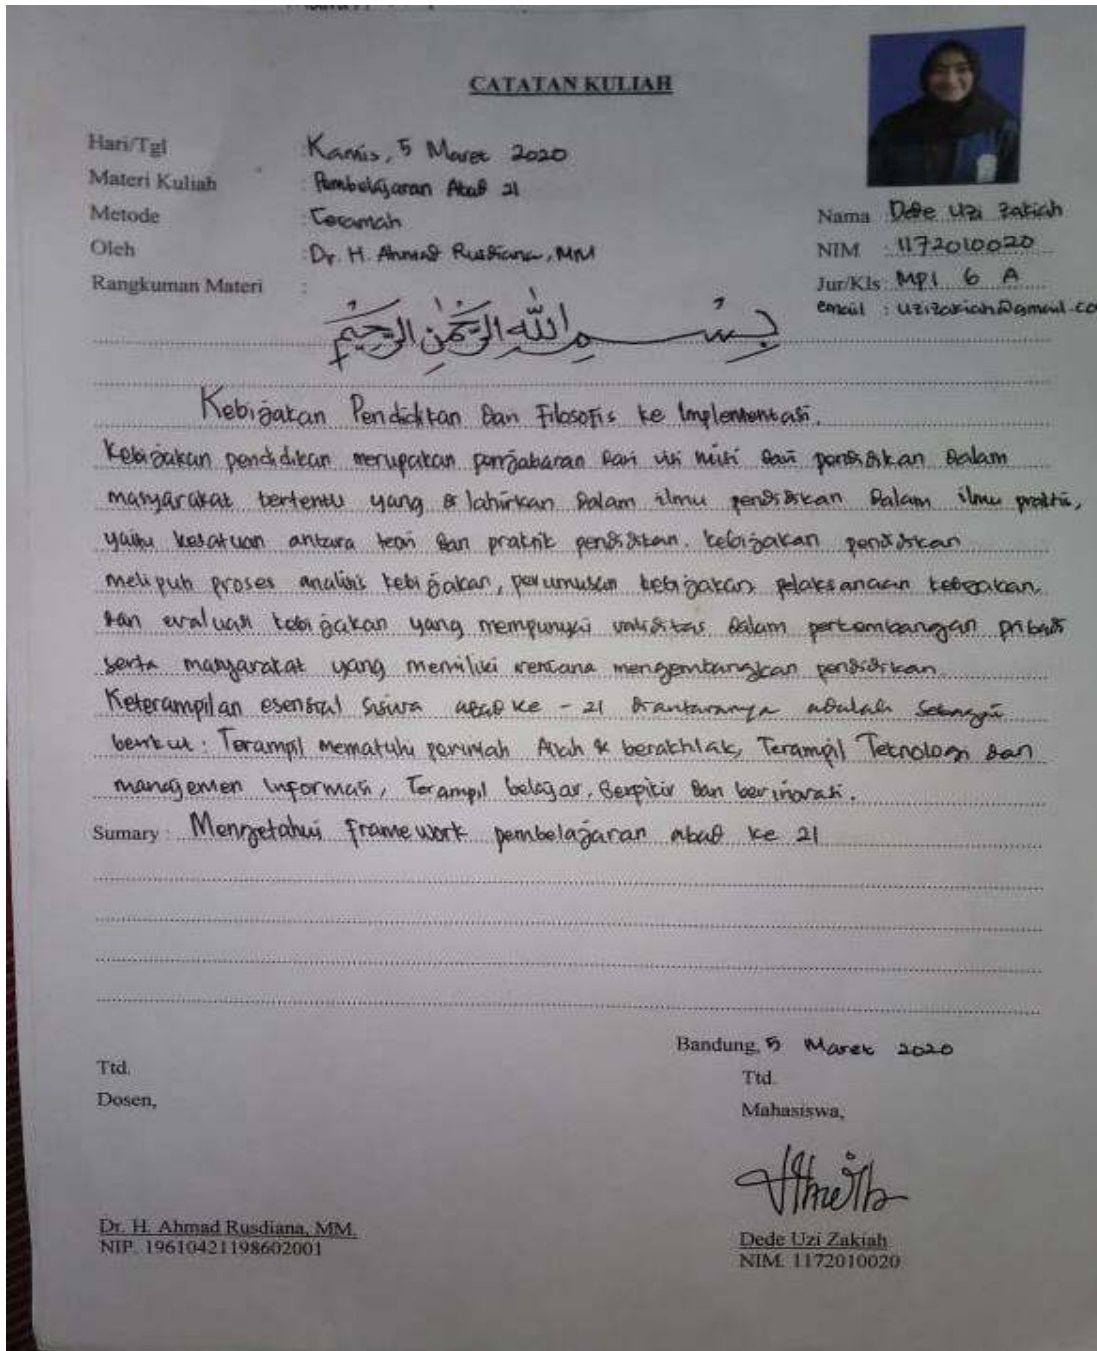 CATATAN KULIAH
Hari/Tgl : Kamis, 5 Maret 2020
Materi Kuliah : Pembelajaran Abad 21
Metode : Ceramah
Oleh : Dr. H. Ahmad Rusdiana, MM
Rangkuman Materi :
Nama : Dede Uzi Zakiah
NIM : 1172010020
Jur/Kls : MPI 6 A
email : uzizakiah@gmail.co
بِسْمِ اللهِ الرَّحْمٰنِ الرَّحِيْمِ
Kebijakan Pendidikan dan Filosofis ke Implementasi.
Kebijakan pendidikan merupakan penjabaran dari visi misi dari pendidikan dalam
masyarakat tertentu yang di lahirkan dalam ilmu pendidikan dalam ilmu praktis,
yaitu kesatuan antara teori dan praktik pendidikan. kebijakan pendidikan
meliputi proses analisis kebijakan, perumusan kebijakan, pelaksanaan kebijakan,
dan evaluasi kebijakan yang mempunyai validitas dalam perkembangan pribadi
serta masyarakat yang memiliki rencana mengembangkan pendidikan.
Keterampilan esensial siswa abad ke - 21 diantaranya adalah sebagai
berikut : Terampil mematuhi perintah Allah & berakhlak, Terampil Teknologi dan
manajemen Informasi, Terampil belajar, Berpikir dan berinovasi.
Sumary : Mengetahui framework pembelajaran abad ke 21
Bandung, 5 Maret 2020
Ttd.
Dosen,
Ttd.
Mahasiswa,
Dr. H. Ahmad Rusdiana, MM.
NIP. 19610421198602001
Dede Uzi Zakiah
NIM. 1172010020